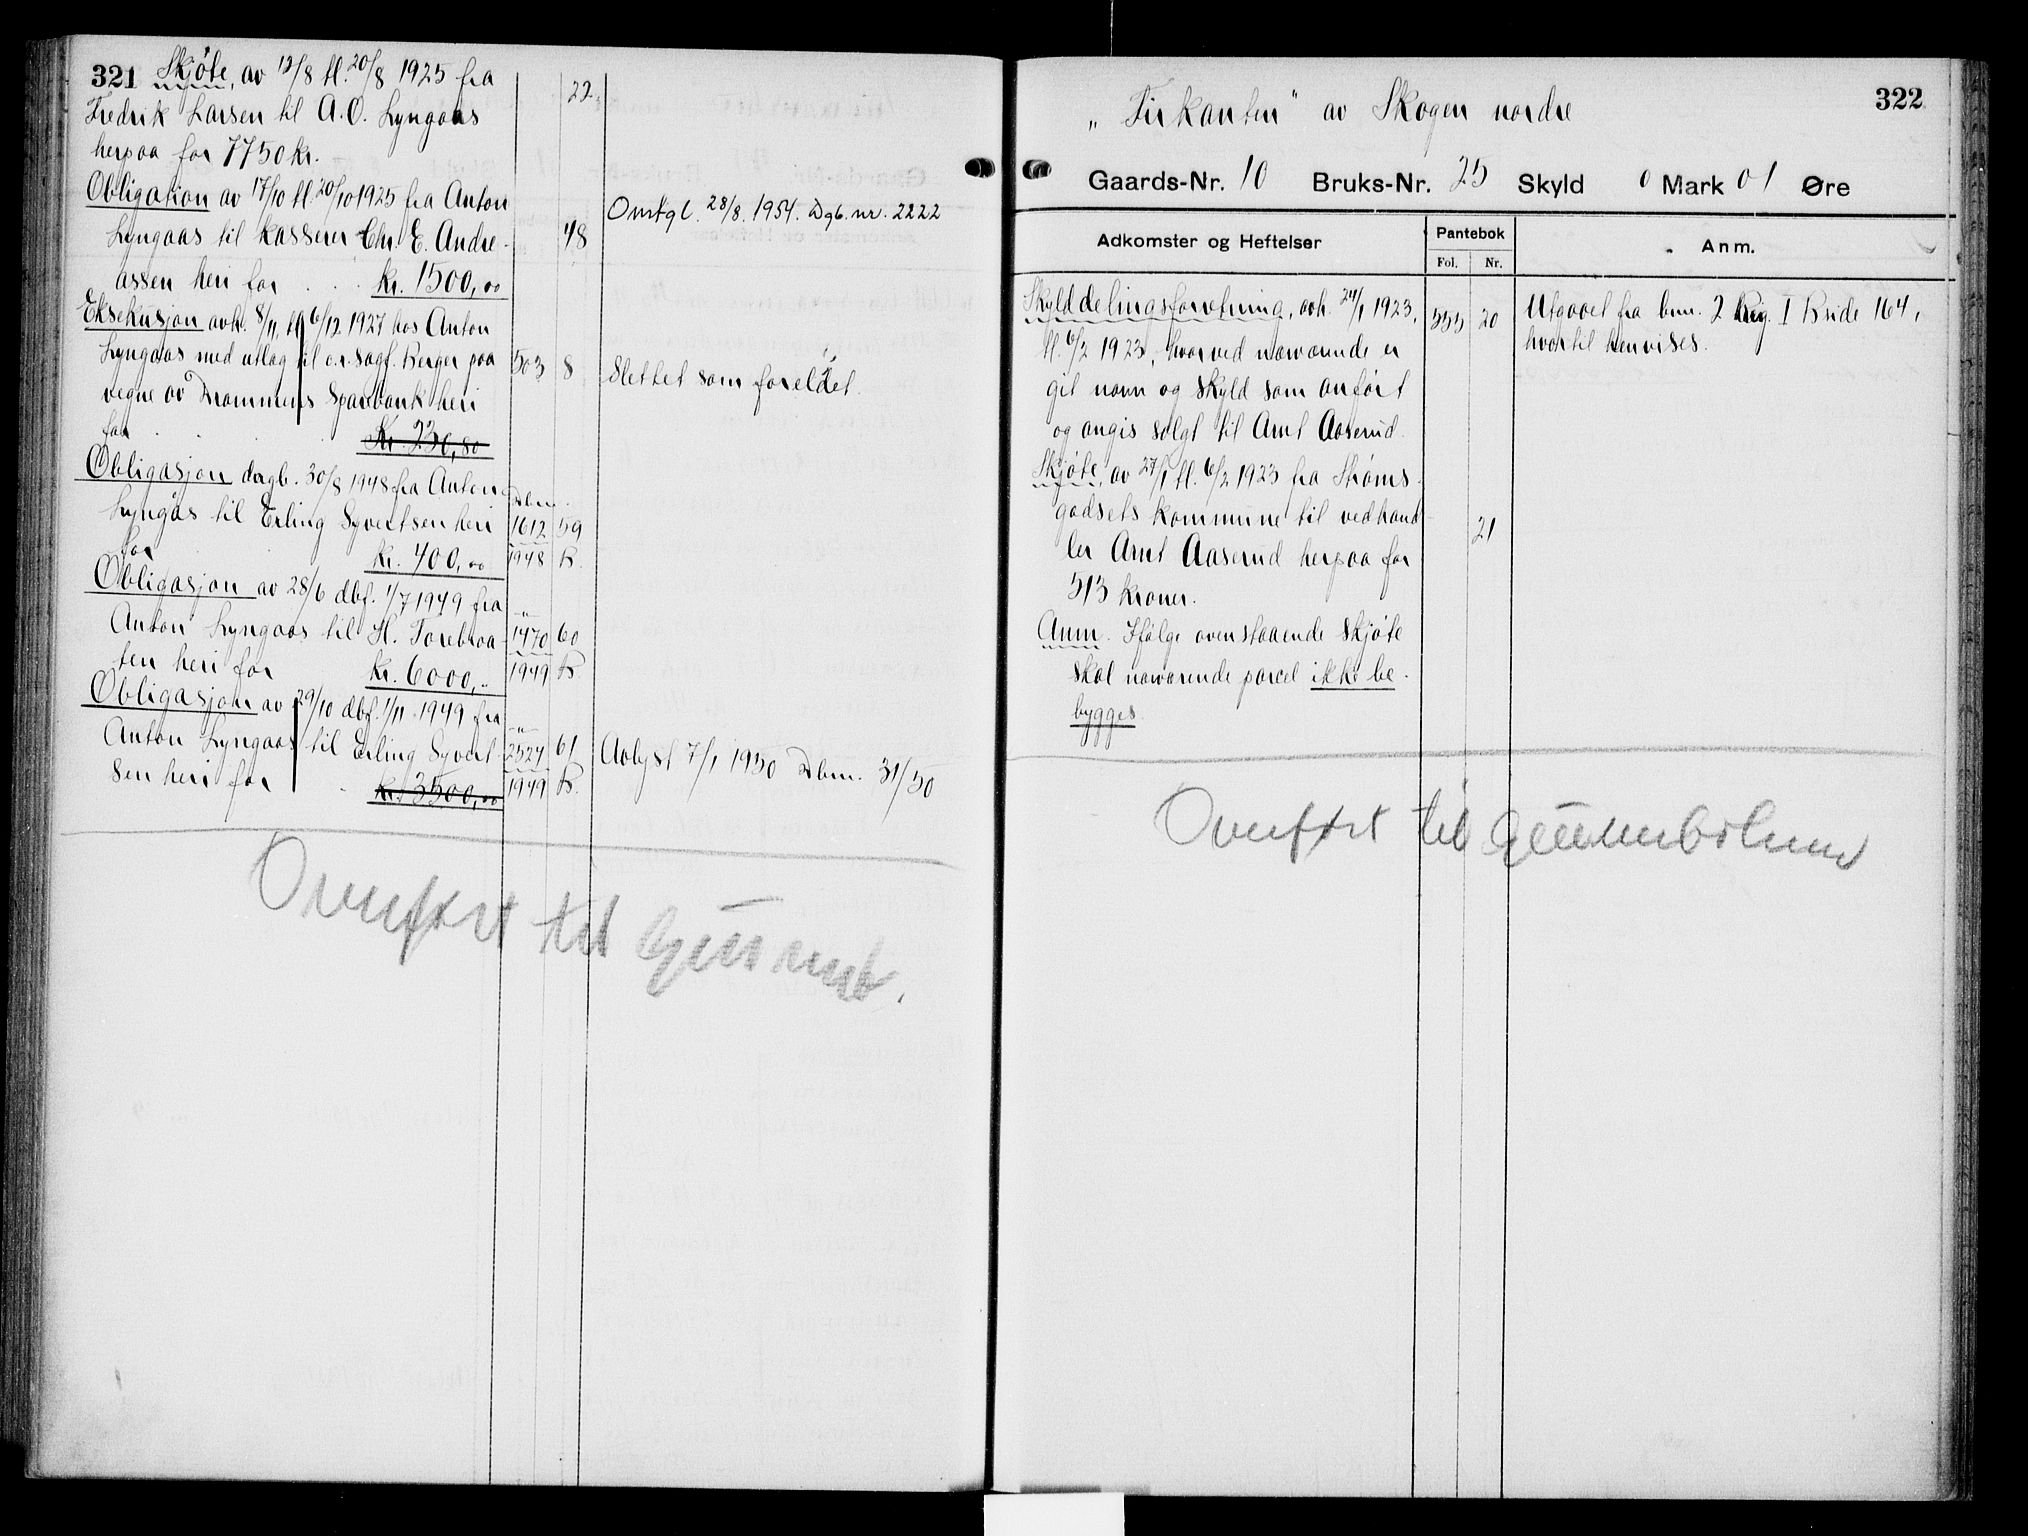 321 Skjöte, av 12/8 tl. 20/8 1925 fra
22.
Fredrik Larsen til A. O. Lyngaas
herpaa for 7750 kr.
Obligation av 17/10 tl. 20/10 1925 fra Anton
Lyngaas til kasserer Chr. E. Andre-
48
Omtgl. 28/8. 1954. Dgb. nr. 2222
assen heri for . . . kr. 1500,00
Eksekusjon avh. 8/11, tl 6/12 1927 hos Anton
Lyngaas med utlag til o.r.sagf. Berger paa
503 8
Slettet som foreldet.
vegne av Drammens Sparebank heri
for . . . Kr. 236,80
Obligasjon dagb. 30/8 1948 fra Anton
Dbnr.
Lyngås til Erling Syvertsen heri
1612 59
for . . . kr. 400,00
1948 B.
Obligasjon av 28/6 dbf. 1/7 1949 fra
"
Anton Lyngaas til H. Torebraa-
1470 60
ten heri for kr. 6000,"
1949 B.
Obligasjon av 29/10 dbf. 1/11 1949 fra
"
Anton Lyngaas til Erling Syvert-
2524 61
Avlyst 7/1 1950 Dbnr. 31/50
sen heri for . kr. 3500,00
1949 B.
Overført til
322
„Firkanten" av Skogen nordre
Gaards-Nr. 10 Bruks-Nr. 25 Skyld 0 Mark 01 Øre
Adkomster og Heftelser
Pantebok
Fol. Nr.
Anm.
Skylddelingsforretning, avh. 24/1 1923,
555 20
Utgaaet fra bnr. 2 Reg. I B side 164,
tl. 6/2 1923, hvorved nærværende er
hvortil henvises.
git navn og skyld som anført
og angis solgt til Arnt Aaserud.
Skjöte, av 27/1 tl. 6/2 1923 fra Strøms-
godsets kommune til vedhand-
21
ler Arnt Aaserud herpaa for
513 kroner.
Anm. Ifølge ovenstaaende skjöte
skal nærværende parcel ikke be-
bygges.
Overført til